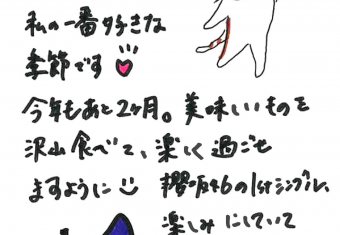 私の一番好きな
季節です
今年もあと2ヶ月。美味しいものを
沢山食べて、楽しく過ごせ
ますように 櫻坂46の1stシングル、
楽しみにしていて